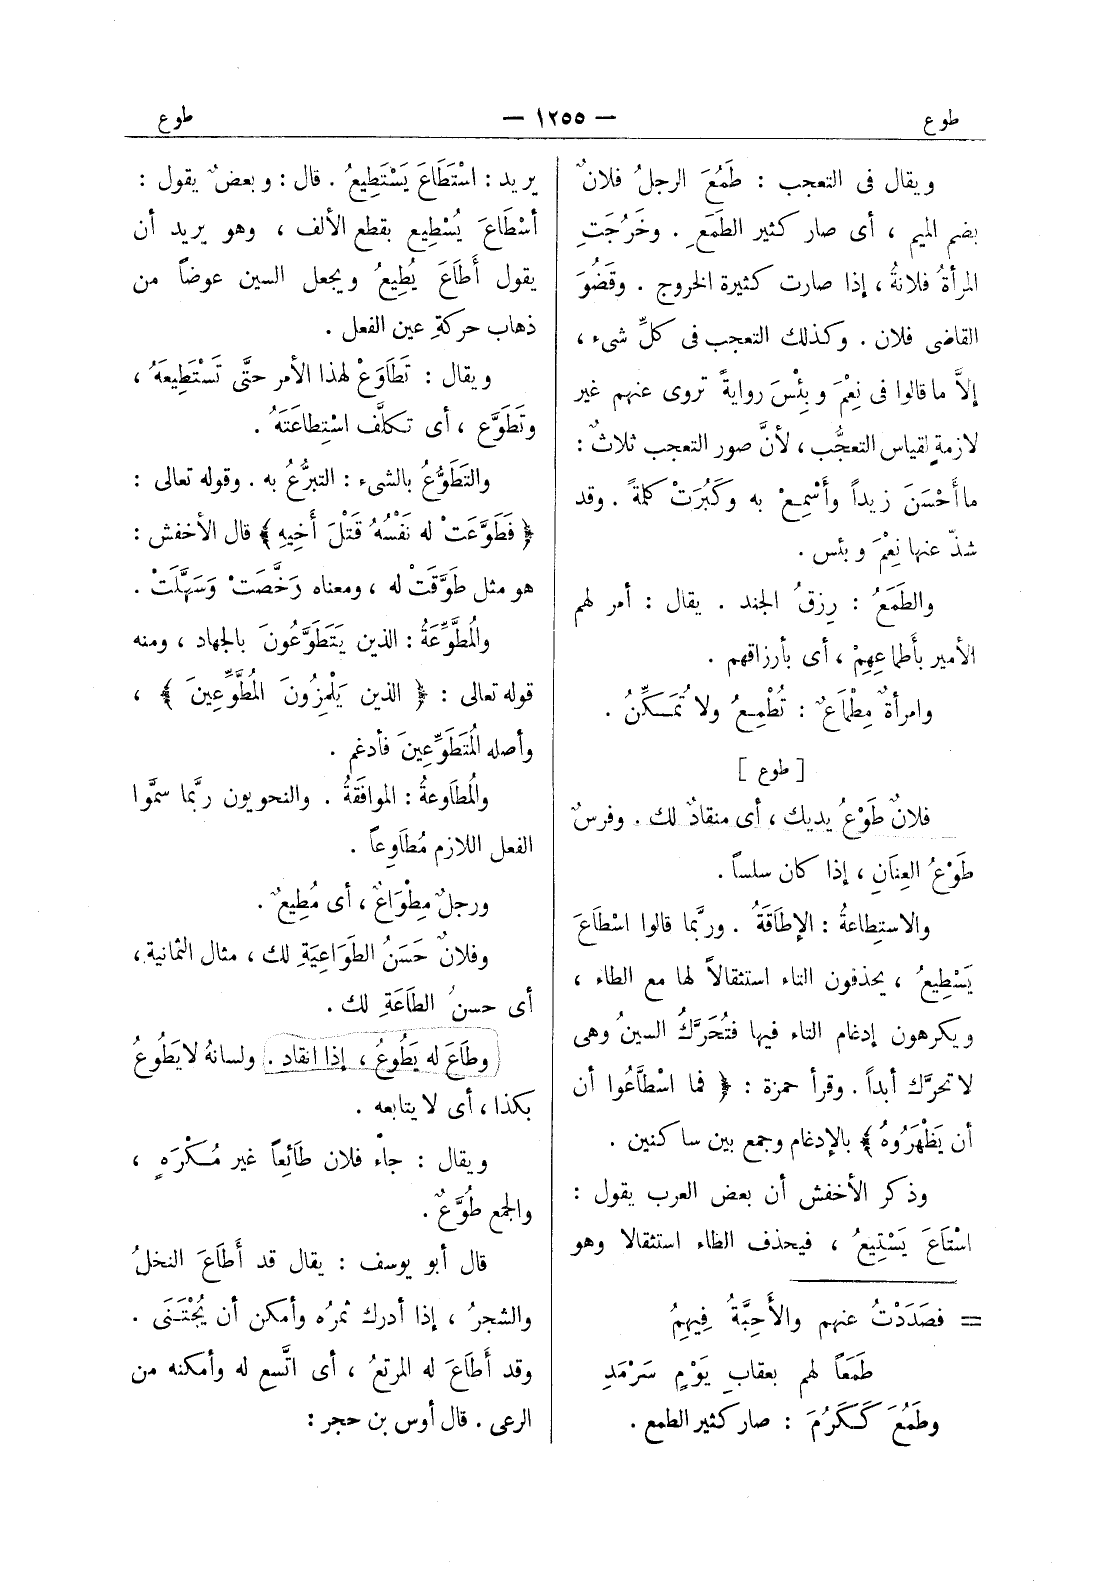 طوع — ١٢٥٥ — طوع
ويقال فى التعجب : طَمُعَ الرجلُ فلانٌ
بضم الميم ، أى صار كثير الطَمَعِ . وخَرُجَتِ
المرأةُ فلانةُ ، إذا صارت كثيرة الخروج . وقَضُوَ
القاضى فلان . وكذلك التعجب فى كلِّ شىء ،
إلاَّ ما قالوا فى نِعْمَ وبِئْسَ روايةً تروى عنهم غير
لازمةٍ لقياس التعجُّب ، لأنَّ صور التعجب ثلاثٌ :
ما أَحْسَنَ زيداً وأَسْمِعْ به وكَبُرَتْ كلمةً . وقد
شذّ عنها نِعْمَ وبئس .
والطَمَعُ : رِزقُ الجند . يقال : أمر لهم
الأمير بأَطماعِهِمْ ، أى بأرزاقهم .
وامرأةٌ مِطْمَاعٌ : تُطْمِعُ ولا تُمَكِّنُ .
[ طوع ]
فلانٌ طَوْعُ يديك ، أى منقادٌ لك . وفرسٌ
طَوْعُ العِنَانِ ، إذا كان سلساً .
والاستِطاعةُ : الإطَاقَةُ . وربَّما قالوا اسْطَاعَ
يَسْطِيعُ ، يحذفون التاء استثقالاً لها مع الطاء ،
ويكرهون إدغام التاء فيها فتُحَرَّكُ السينُ وهى
لا تحرَّك أبداً . وقرأ حمزة : ﴿ فما اسْطَّاعُوا أن
أن يَظْهَرُوهُ ﴾ بالإدغام وجمع بين ساكنين .
وذكر الأخفش أن بعض العرب يقول :
اسْتَاعَ يَسْتِيعُ ، فيحذف الطاء استثقالا وهو
= فصَدَدْتُ عنهم والأَحِبَّةُ فِيهِمُ
طَمَعاً لهم بعقابِ يَوْمٍ سَرْمَدِ
وطَمُعَ كَكَرُمَ : صار كثير الطمع .
يريد : اسْتَطَاعَ يَسْتَطِيعُ . قال : وبعضٌ يقول :
أسْطَاعَ يُسْطِيع بقطع الألف ، وهو يريد أن
يقول أَطَاعَ يُطِيعُ ويجعل السين عوضاً من
ذهاب حركةِ عين الفعل .
ويقال : تَطَاوَعْ لهذا الأمرِ حتَّى تَسْتَطِيعَهُ ،
وتَطَوَّع ، أى تكلَّف اسْتِطاعَتَهُ .
والتَطَوُّعُ بالشىء : التبرُّعُ به . وقوله تعالى :
﴿ فَطَوَّعَتْ له نَفْسُهُ قَتْلَ أَخِيهِ ﴾ قال الأخفش :
هو مثل طَوَّقَتْ له ، ومعناه رَخَّصَتْ وَسَهَّلَتْ .
والمُطَّوِّعَةُ : الذين يَتَطَوَّعُونَ بالجهاد ، ومنه
قوله تعالى : ﴿ الذين يَلْمِزُونَ المُطَّوِّعِينَ ﴾ ،
وأصله المُتَطَوِّعِينَ فأدغم .
والمُطَاوعةُ : الموافَقَةُ . والنحويون ربَّما سمَّوا
الفعل اللازم مُطَاوِعاً .
ورجلٌ مِطْوَاعٌ ، أى مُطِيعٌ .
وفلانٌ حَسَنُ الطَوَاعِيَةِ لك ، مثال الثمانية ،
أى حسنُ الطَاعَةِ لك .
وطَاعَ له يَطُوعُ ، إذا انقاد . ولسانهُ لا يَطُوعُ
بكذا ، أى لا يتابعه .
ويقال : جاء فلان طَائِعاً غير مُكْرَهٍ ،
والجمع طُوَّعٌ .
قال أبو يوسف : يقال قد أَطَاعَ النخلُ
والشجرُ ، إذا أدرك ثمرُه وأمكن أن يُجْتَنَى .
وقد أَطَاعَ له المرتعُ ، أى اتَّسع له وأمكنه من
الرعى . قال أوس بن حجر :